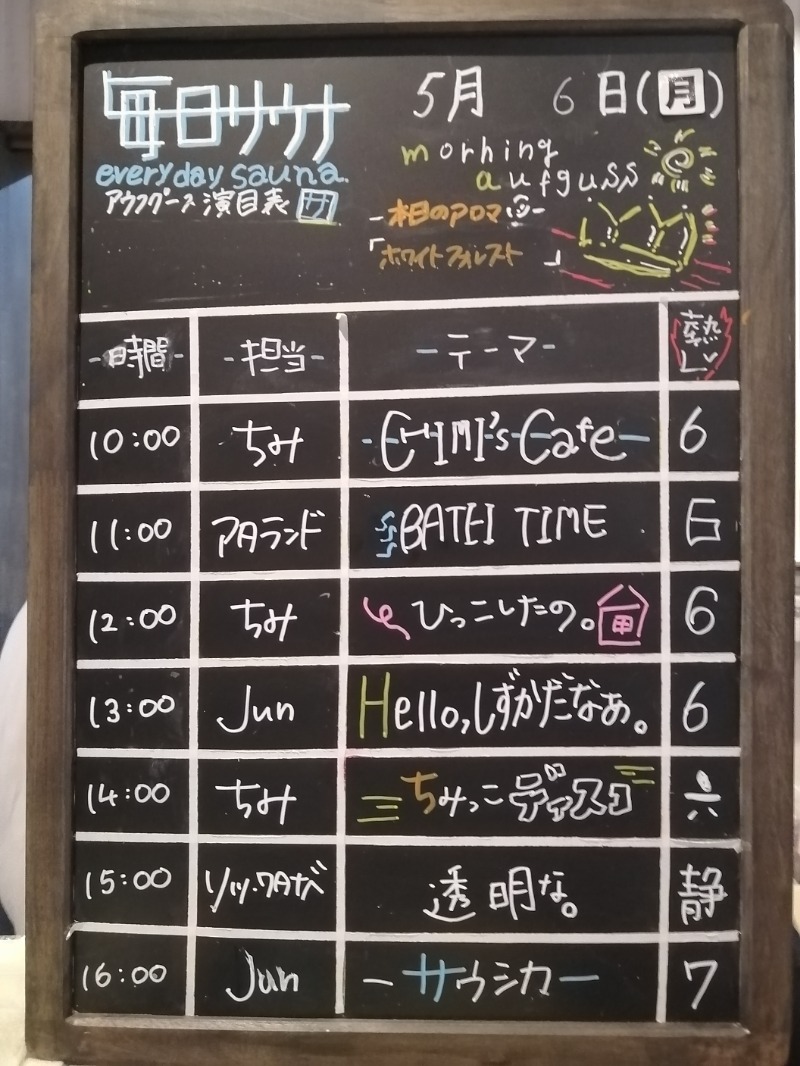 毎日サウナ
everyday sauna.
アウフグース演目表 サ
5月 6日(月)
morning
aufguss
-本日のアロマ-
「ホワイトフォレスト」
-時間- -担当- -テーマ- 熱レベ
10:00 ちみ -CHIMI's Cafe- 6
11:00 アタランド BATH TIME
12:00 ちみ ひっこしたの。 6
13:00 Jun Hello,しずかだなあ。 6
14:00 ちみ ちみっこディスコ 六
15:00 透明な。 静
16:00 Jun -サウシカ- 7